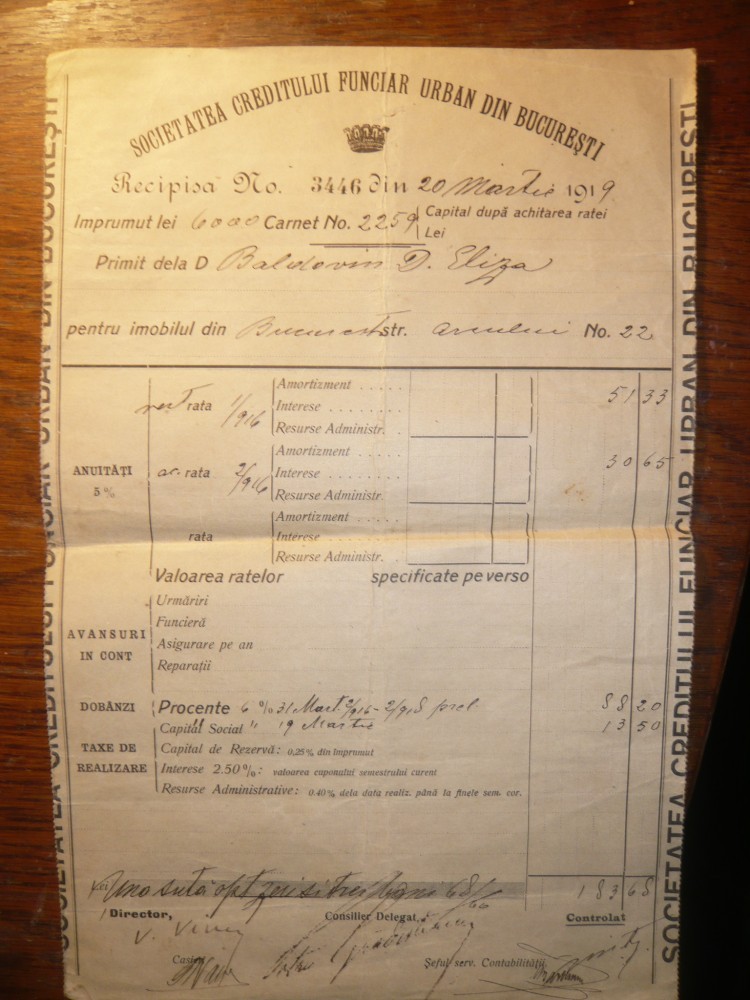 SOCIETATEA CREDITULUI FUNCIAR URBAN DIN BUCUREȘTI
Recipisa No. 3446 din 20 Martie 1919
Imprumut lei 6000 Carnet No. 2259 Capital după achitarea ratei
Lei
Primit dela D Baldovin D. Eliza
pentru imobilul din Bucuresti str. Arcului No. 22
ANUITĂȚI
5 %
rest rata 1/916
Amortizment
Interese
Resurse Administr.
51 33
ac. rata 2/916
Amortizment
Interese
Resurse Administr.
30 65
rata
Amortizment
Interese
Resurse Administr.
Valoarea ratelor specificate pe verso
AVANSURI
IN CONT
Urmăriri
Funcieră
Asigurare pe an
Reparații
DOBÂNZI
Procente 6 % 31 Mart. 2/916 - 2/918 88 20
Capital Social " 19 Martie 13 50
TAXE DE
REALIZARE
Capital de Rezervă: 0,25 % din împrumut
Interese 2.50 %: valoarea cuponului semestrului curent
Resurse Administrative: 0.40 % dela data realiz. până la finele sem. cor.
Lei Una sută opt zeci si trei bani 68 183 68
Director, Consilier Delegat, Controlat
Casier Șeful serv. Contabilității
SOCIETATEA CREDITULUI FUNCIAR URBAN DIN BUCUREȘTI
SOCIETATEA CREDITULUI FUNCIAR URBAN DIN BUCUREȘTI